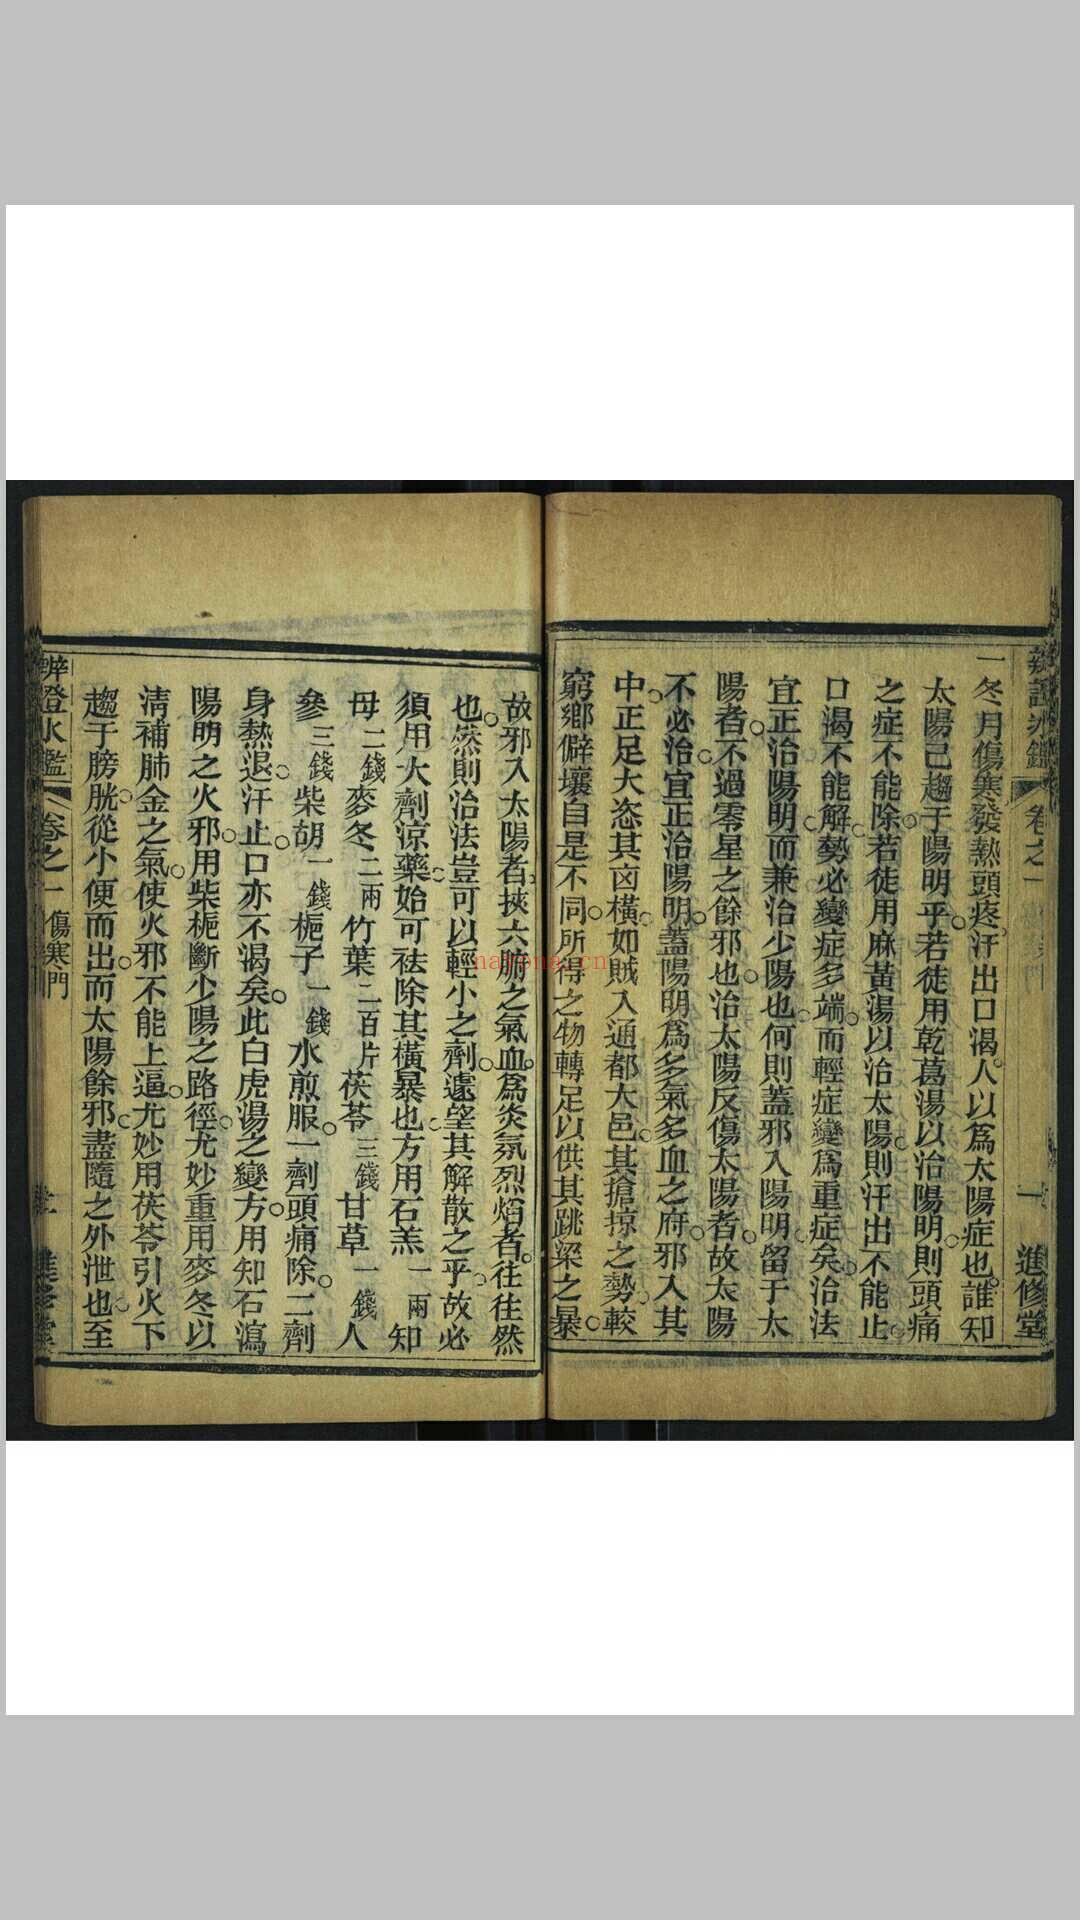 辨證冰鑑 卷之一 一 進修堂
一冬月傷寒發熱頭疼汗出口渴人以爲太陽症也誰知
太陽已趨于陽明乎若徒用乾葛湯以治陽明則頭痛
之症不能除若徒用麻黃湯以治太陽則汗出不能止
口渴不能解勢必變症多端而輕症變爲重症矣治法
宜正治陽明而兼治少陽也何則蓋邪入陽明留于太
陽者不過零星之餘邪也治太陽反傷太陽者故太陽
不必治宜正治陽明蓋陽明爲多氣多血之府邪入其
中正足大恣其凶橫如賊入通都大邑其搶掠之勢較
窮鄉僻壤自是不同所得之物轉足以供其跳梁之暴
故邪入太陽者挾六腑之氣血爲炎氛烈焰者往往然
也然則治法豈可以輕小之劑遽望其解散之乎故必
須用大劑涼藥始可祛除其橫暴也方用石羔一兩知
母二錢麥冬二兩竹葉二百片茯苓三錢甘草一錢人
參三錢柴胡一錢梔子一錢水煎服一劑頭痛除二劑
身熱退汗止口亦不渴矣此白虎湯之變方用知石瀉
陽明之火邪用柴梔斷少陽之路徑尤妙重用麥冬以
清補肺金之氣使火邪不能上逼尤妙用茯苓引火下
趨于膀胱從小便而出而太陽餘邪盡隨之外泄也至
辨證冰鑑 卷之一 傷寒門
nayona.cn